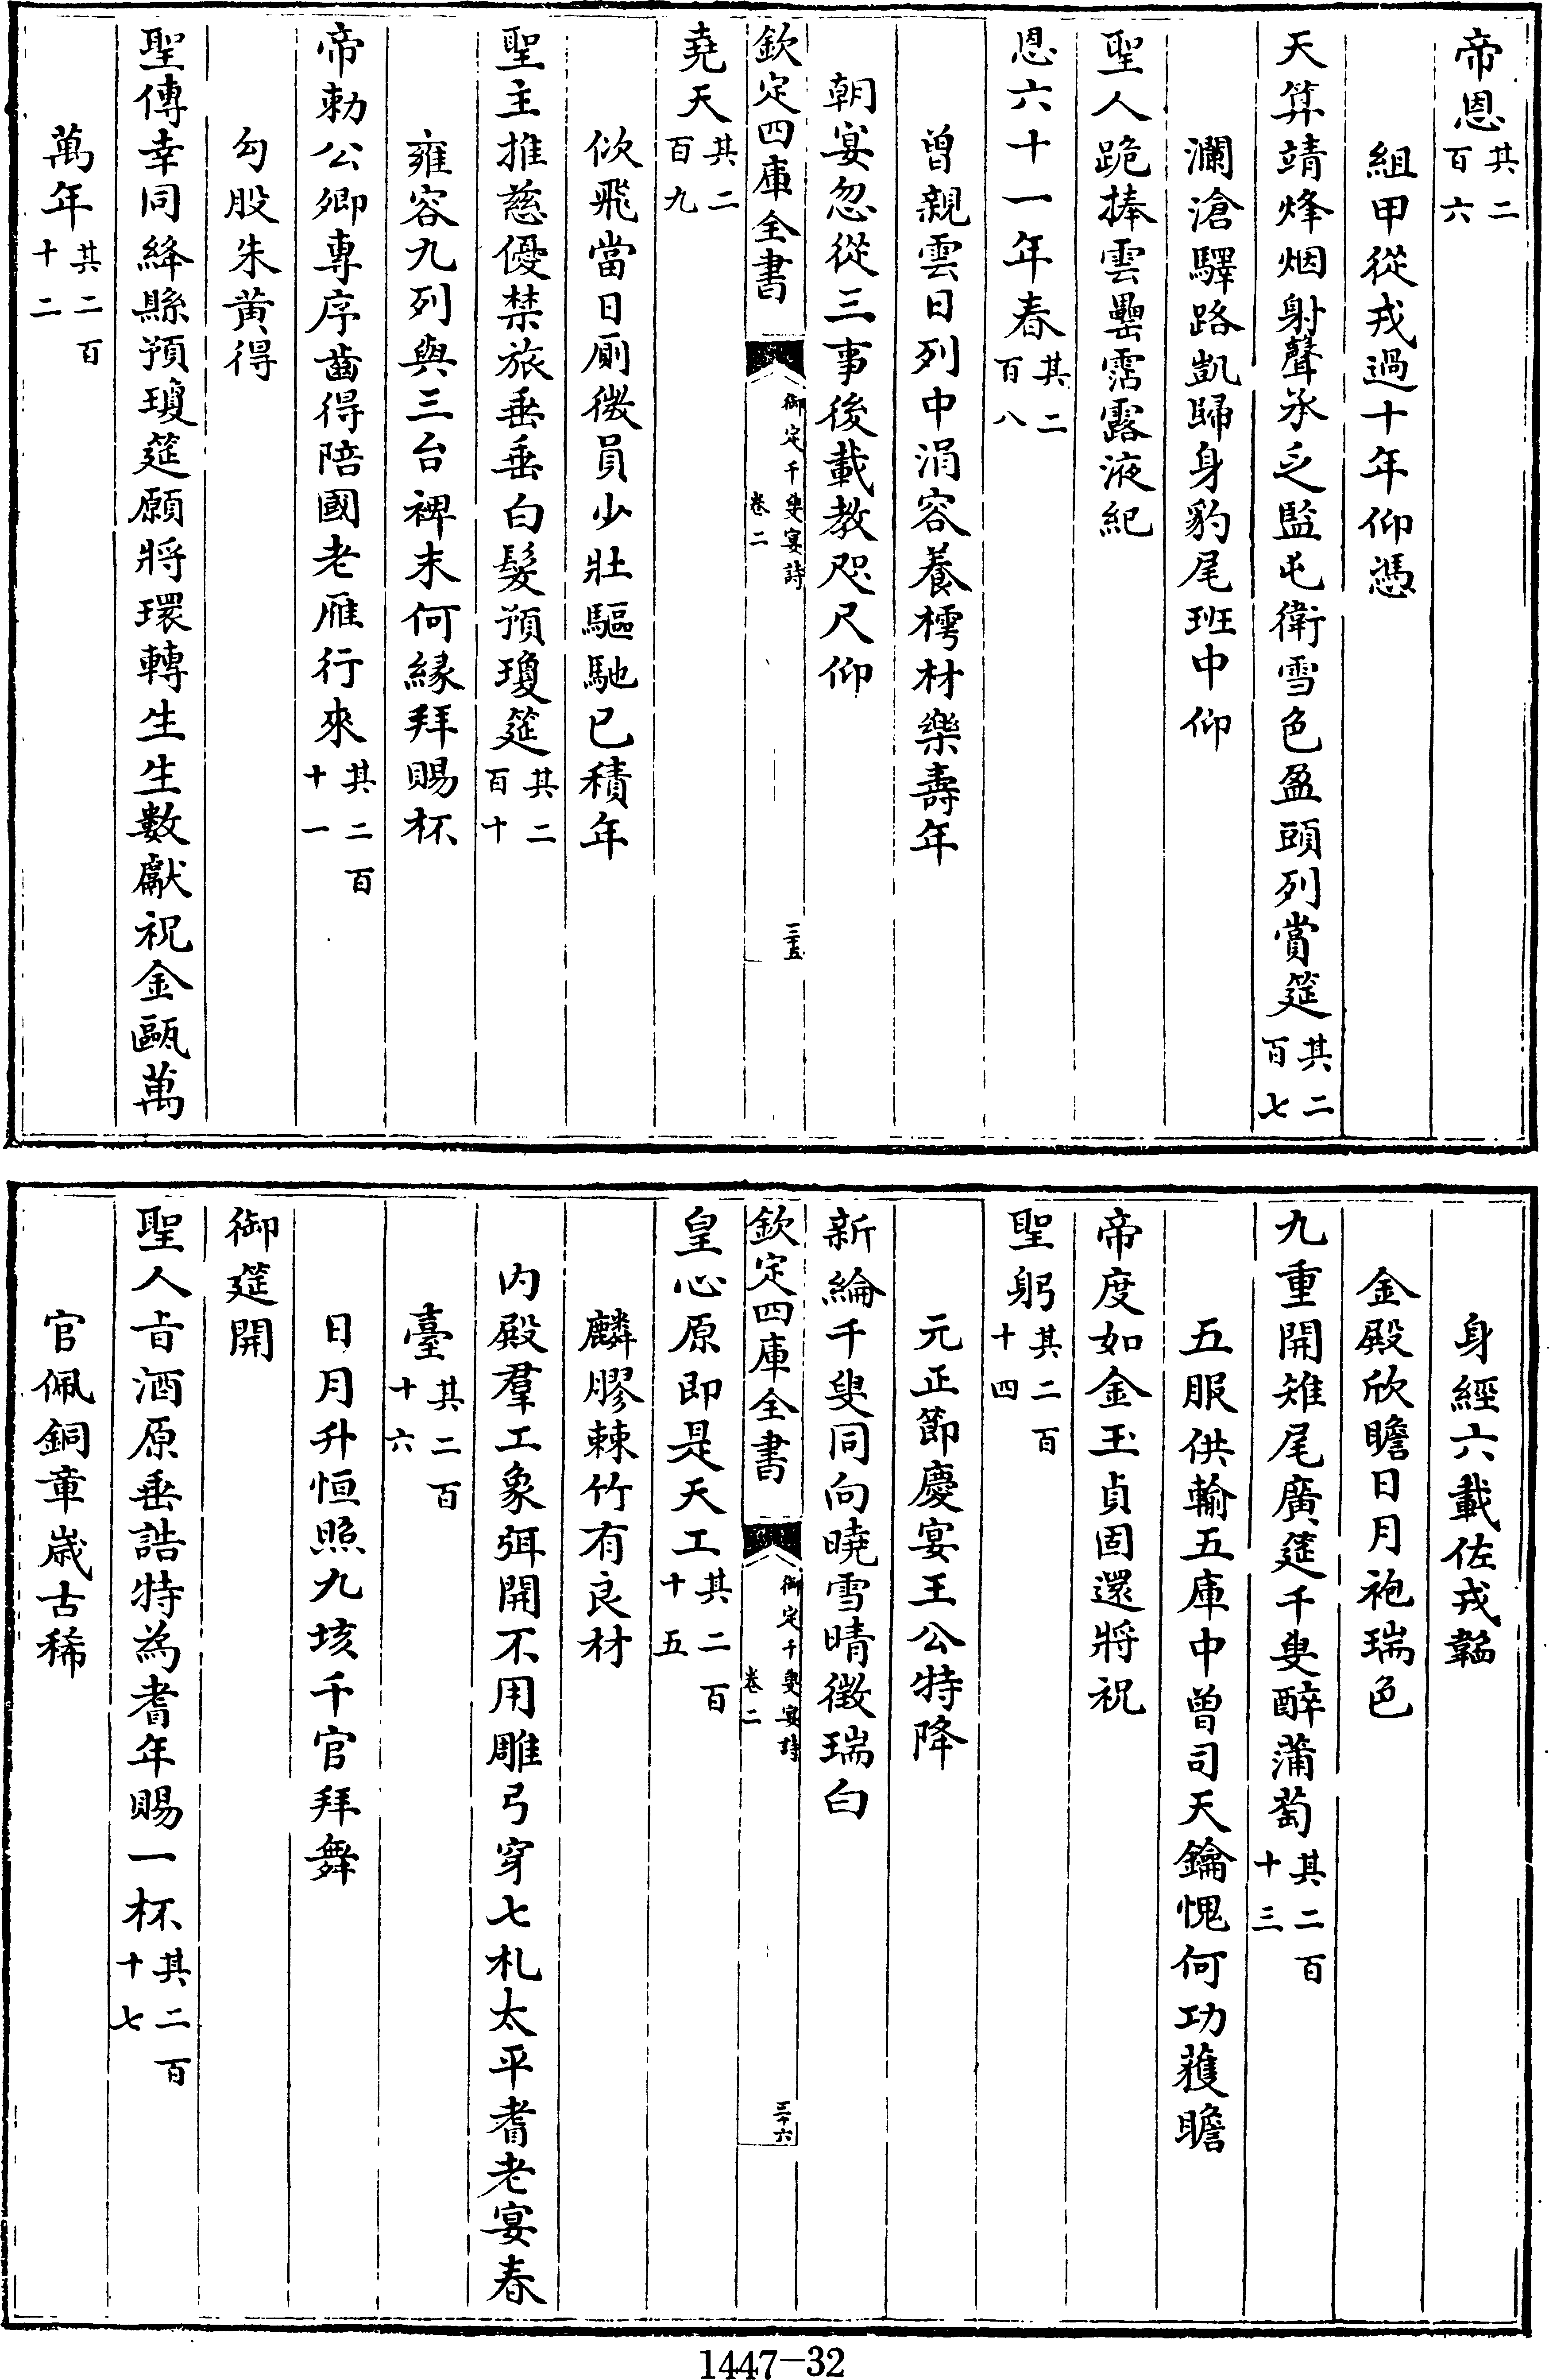 帝恩其二百六
組甲從戎過十年仰憑
天算靖烽烟射聲承乏監屯衛雪色盈頭列賞筵其二百七
瀾滄驛路凱歸身豹尾班中仰
聖人跪捧雲罍霑露液紀
恩六十一年春其二百八
曾親雲日列中涓容養樗材樂壽年
朝宴忽從三事後載教咫尺仰
欽定四庫全書 御定千叟宴詩 卷二 三十五
堯天其二百九
佽飛當日廁微員少壯驅馳已積年
聖主推慈優禁旅垂垂白髮預瓊筵其二百十
雍容九列與三台裨末何緣拜賜杯
帝勅公卿專序齒得陪國老雁行來其二百十一
勾股朱黄得
聖傳幸同絳縣預瓊筵願將環轉生生數獻祝金甌萬
萬年其二百十二
身經六載佐戎韜
金殿欣瞻日月袍瑞色
九重開雉尾廣筵千叟醉蒲萄其二百十三
五服供輸五庫中曾司天鑰愧何功獲瞻
帝度如金玉貞固還將祝
聖躬其二百十四
元正節慶宴王公特降
新綸千叟同向曉雪晴徵瑞白
欽定四庫全書 御定千叟宴詩 卷二 三十六
皇心原即是天工其二百十五
麟膠棘竹有良材
内殿羣工象弭開不用雕弓穿七札太平耆老宴春
臺其二百十六
日月升恒照九垓千官拜舞
御筵開
聖人㫖酒原垂誥特為耆年賜一杯其二百十七
官佩銅章歲古稀
1447-32